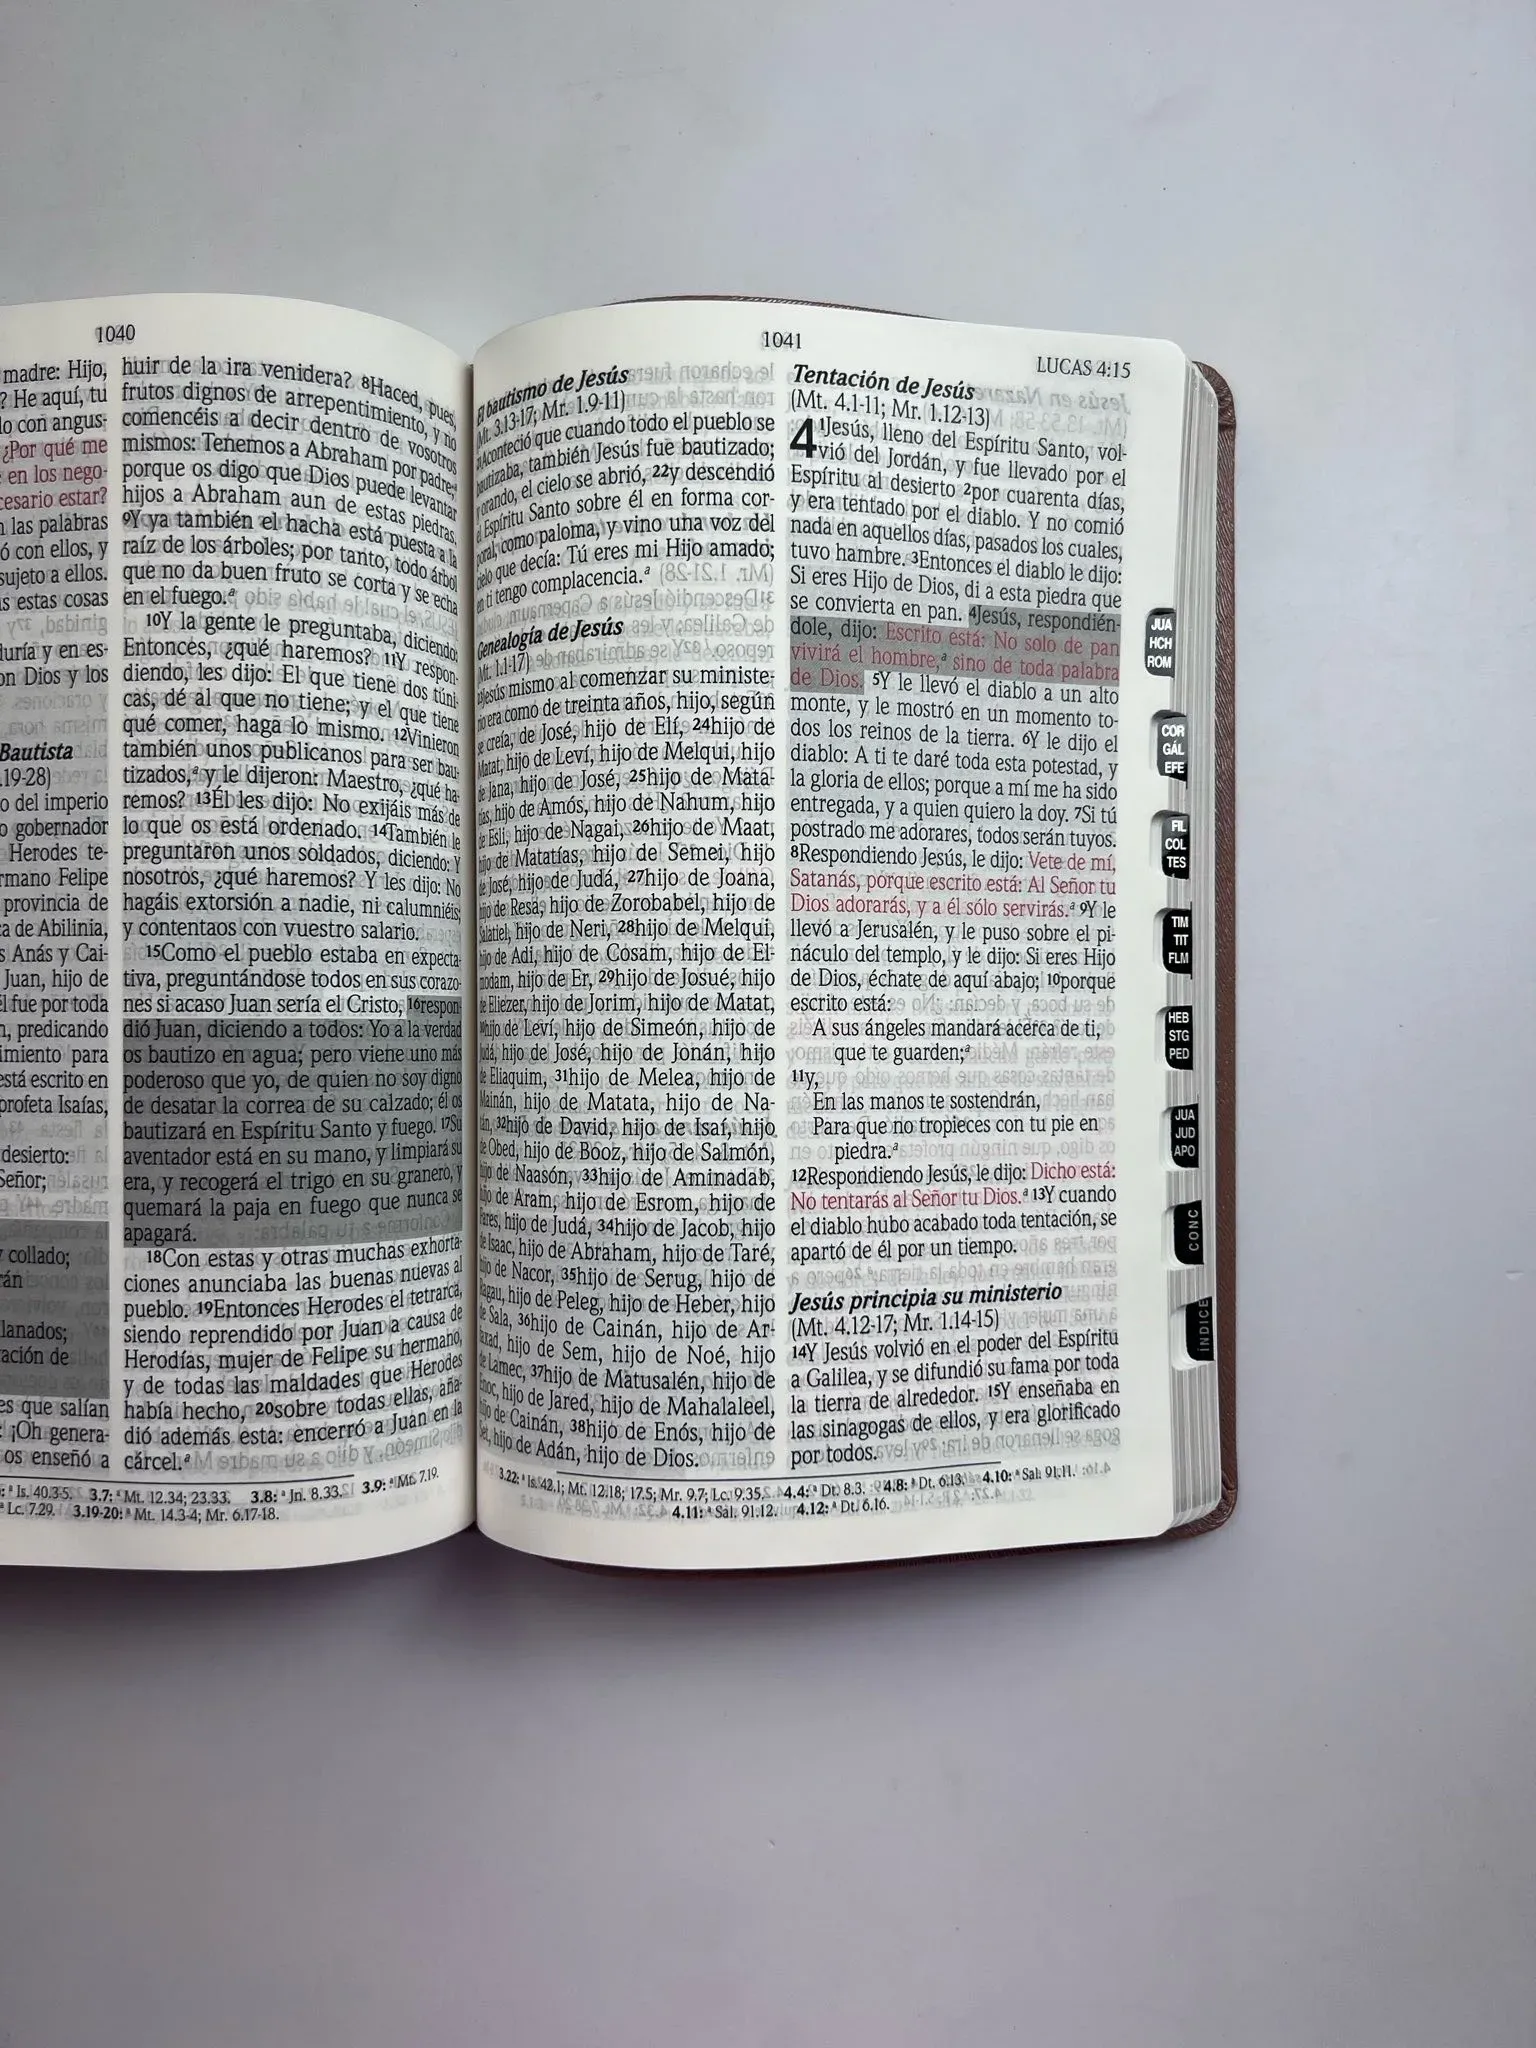 1040
madre: Hijo,
? He aquí, tú
lo con angus-
¿Por qué me
en los nego-
cesario estar?
n las palabras
ó con ellos, y
sujeto a ellos.
s estas cosas
duría y en es-
on Dios y los
Bautista
.19-28)
o del imperio
o gobernador
Herodes te-
rmano Felipe
provincia de
a de Abilinia,
s Anás y Cai-
Juan, hijo de
él fue por toda
n, predicando
imiento para
está escrito en
profeta Isaías,
desierto:
Señor;
y collado;
rán
llanados;
ación de
es que salían
: ¡Oh genera-
os enseñó a
huir de la ira venidera? 8Haced, pues,
frutos dignos de arrepentimiento, y no
comencéis a decir dentro de vosotros
mismos: Tenemos a Abraham por padre;
porque os digo que Dios puede levantar
hijos a Abraham aun de estas piedras.
9Y ya también el hacha está puesta a la
raíz de los árboles; por tanto, todo árbol
que no da buen fruto se corta y se echa
en el fuego.ª
10Y la gente le preguntaba, diciendo:
Entonces, ¿qué haremos? 11Y respon-
diendo, les dijo: El que tiene dos túni-
cas, dé al que no tiene; y el que tiene
qué comer, haga lo mismo. 12Vinieron
también unos publicanos para ser bau-
tizados,ª y le dijeron: Maestro, ¿qué ha-
remos? 13Él les dijo: No exijáis más de
lo que os está ordenado. 14También le
preguntaron unos soldados, diciendo: Y
nosotros, ¿qué haremos? Y les dijo: No
hagáis extorsión a nadie, ni calumniéis;
y contentaos con vuestro salario.
15Como el pueblo estaba en expecta-
tiva, preguntándose todos en sus corazo-
nes si acaso Juan sería el Cristo, 16respon-
dió Juan, diciendo a todos: Yo a la verdad
os bautizo en agua; pero viene uno más
poderoso que yo, de quien no soy digno
de desatar la correa de su calzado; él os
bautizará en Espíritu Santo y fuego. 17Su
aventador está en su mano, y limpiará su
era, y recogerá el trigo en su granero, y
quemará la paja en fuego que nunca se
apagará.
18Con estas y otras muchas exhorta-
ciones anunciaba las buenas nuevas al
pueblo. 19Entonces Herodes el tetrarca,
siendo reprendido por Juan a causa de
Herodías, mujer de Felipe su hermano,
y de todas las maldades que Herodes
había hecho, 20sobre todas ellas, aña-
dió además esta: encerró a Juan en la
cárcel.ª
: ª Is. 40.3-5. 3.7: ª Mt. 12.34; 23.33. 3.8: ª Jn. 8.33. 3.9: ª Mt. 7.19.
ª Lc. 7.29. 3.19-20: ª Mt. 14.3-4; Mr. 6.17-18.
1041
LUCAS 4:15
El bautismo de Jesús
(Mt. 3.13-17; Mr. 1.9-11)
Aconteció que cuando todo el pueblo se
bautizaba, también Jesús fue bautizado;
y orando, el cielo se abrió, 22y descendió
el Espíritu Santo sobre él en forma cor-
poral, como paloma, y vino una voz del
cielo que decía: Tú eres mi Hijo amado;
en ti tengo complacencia.ª
Genealogía de Jesús
(Mt. 1.1-17)
Jesús mismo al comenzar su ministe-
rio era como de treinta años, hijo, según
se creía, de José, hijo de Elí, 24hijo de
Matat, hijo de Leví, hijo de Melqui, hijo
de Jana, hijo de José, 25hijo de Mata-
tías, hijo de Amós, hijo de Nahum, hijo
de Esli, hijo de Nagai, 26hijo de Maat,
hijo de Matatías, hijo de Semei, hijo
de José, hijo de Judá, 27hijo de Joana,
hijo de Resa, hijo de Zorobabel, hijo de
Salatiel, hijo de Neri, 28hijo de Melqui,
hijo de Adi, hijo de Cosam, hijo de El-
modam, hijo de Er, 29hijo de Josué, hijo
de Eliezer, hijo de Jorim, hijo de Matat,
30hijo de Leví, hijo de Simeón, hijo de
Judá, hijo de José, hijo de Jonán, hijo
de Eliaquim, 31hijo de Melea, hijo de
Mainán, hijo de Matata, hijo de Na-
tán, 32hijo de David, hijo de Isaí, hijo
de Obed, hijo de Booz, hijo de Salmón,
hijo de Naasón, 33hijo de Aminadab,
hijo de Aram, hijo de Esrom, hijo de
Fares, hijo de Judá, 34hijo de Jacob, hijo
de Isaac, hijo de Abraham, hijo de Taré,
hijo de Nacor, 35hijo de Serug, hijo de
Ragau, hijo de Peleg, hijo de Heber, hijo
de Sala, 36hijo de Cainán, hijo de Ar-
faxad, hijo de Sem, hijo de Noé, hijo
de Lamec, 37hijo de Matusalén, hijo de
Enoc, hijo de Jared, hijo de Mahalaleel,
hijo de Cainán, 38hijo de Enós, hijo de
Set, hijo de Adán, hijo de Dios.
Tentación de Jesús
(Mt. 4.1-11; Mr. 1.12-13)
4 1Jesús, lleno del Espíritu Santo, vol-
vió del Jordán, y fue llevado por el
Espíritu al desierto 2por cuarenta días,
y era tentado por el diablo. Y no comió
nada en aquellos días, pasados los cuales,
tuvo hambre. 3Entonces el diablo le dijo:
Si eres Hijo de Dios, di a esta piedra que
se convierta en pan. 4Jesús, respondién-
dole, dijo: Escrito está: No solo de pan
vivirá el hombre,ª sino de toda palabra
de Dios. 5Y le llevó el diablo a un alto
monte, y le mostró en un momento to-
dos los reinos de la tierra. 6Y le dijo el
diablo: A ti te daré toda esta potestad, y
la gloria de ellos; porque a mí me ha sido
entregada, y a quien quiero la doy. 7Si tú
postrado me adorares, todos serán tuyos.
8Respondiendo Jesús, le dijo: Vete de mí,
Satanás, porque escrito está: Al Señor tu
Dios adorarás, y a él sólo servirás.ª 9Y le
llevó a Jerusalén, y le puso sobre el pi-
náculo del templo, y le dijo: Si eres Hijo
de Dios, échate de aquí abajo; 10porque
escrito está:
A sus ángeles mandará acerca de ti,
que te guarden;ª
11y,
En las manos te sostendrán,
Para que no tropieces con tu pie en
piedra.ª
12Respondiendo Jesús, le dijo: Dicho está:
No tentarás al Señor tu Dios.ª 13Y cuando
el diablo hubo acabado toda tentación, se
apartó de él por un tiempo.
Jesús principia su ministerio
(Mt. 4.12-17; Mr. 1.14-15)
14Y Jesús volvió en el poder del Espíritu
a Galilea, y se difundió su fama por toda
la tierra de alrededor. 15Y enseñaba en
las sinagogas de ellos, y era glorificado
por todos.
3.22: ª Is. 42.1; Mt. 12.18; 17.5; Mr. 9.7; Lc. 9.35. 4.4: ª Dt. 8.3. 4.8: ª Dt. 6.13. 4.10: ª Sal. 91.11.
4.11: ª Sal. 91.12. 4.12: ª Dt. 6.16.
JUA
HCH
ROM
COR
GÁL
EFE
FIL
COL
TES
TIM
TIT
FLM
HEB
STG
PED
JUA
JUD
APO
CONC
ÍNDICE